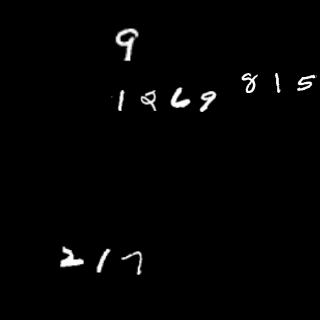 9
1269
815
217